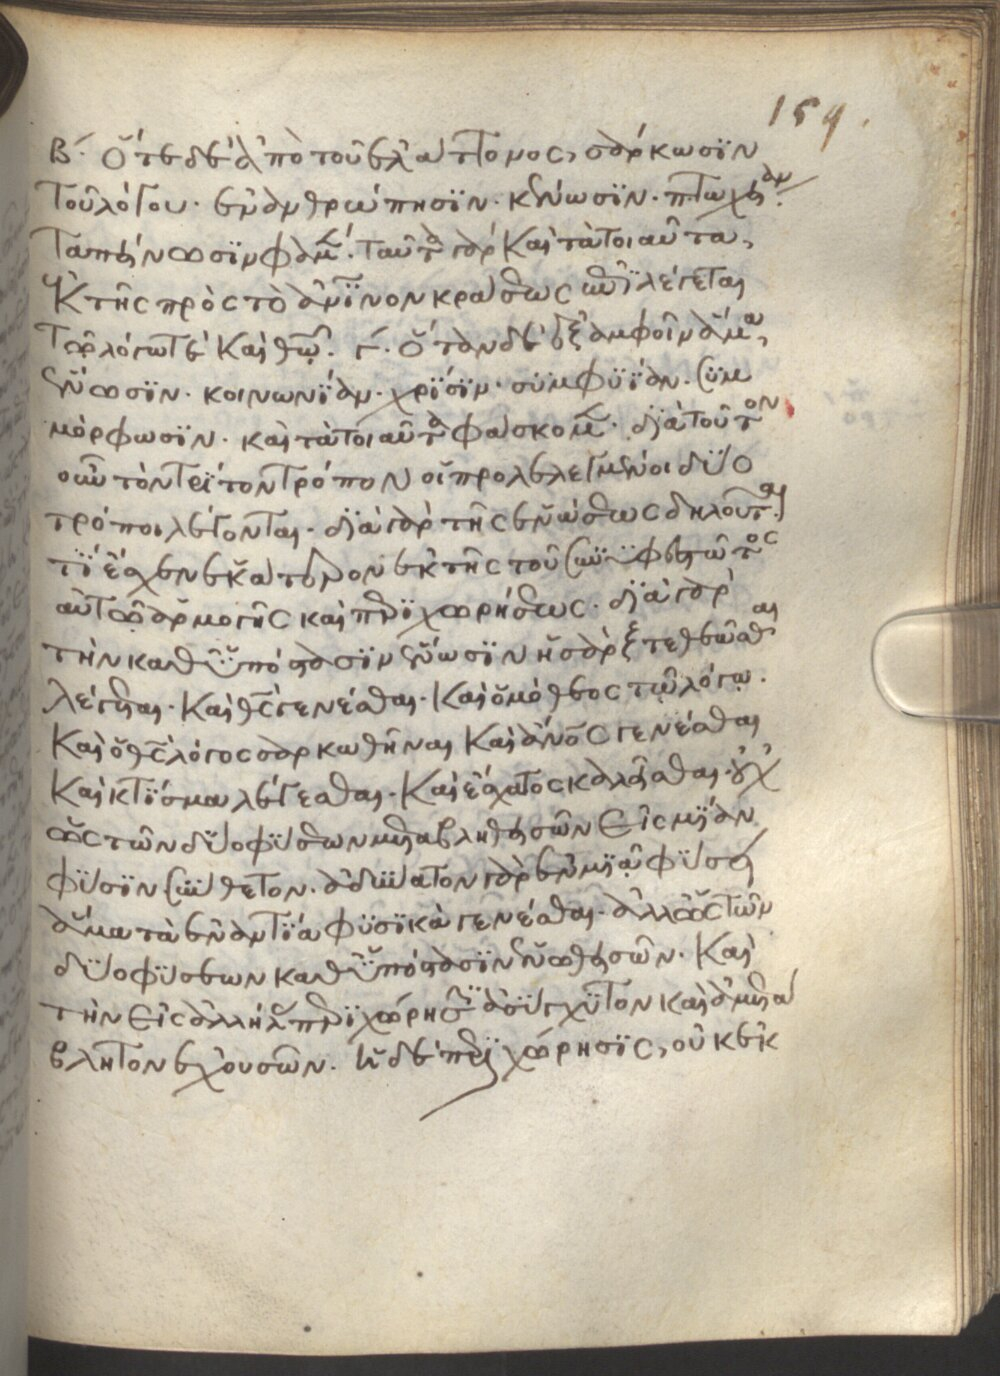 159.
Β· Ὅτε δὲ ἀπὸ τοῦ ἐλάττονος, σάρκωσϊν
τοῦ λόγου· ἐνανθρώπησϊν· κένωσϊν· πτωχείαν·
ταπείνωσϊν φαμ(εν)· ταῦτα γὰρ καὶ τὰ τοιαῦτα,
ἐκ τῆς πρὸς τὸ ἀν(θρώπ)ϊνον κράσεως ἐπϊλέγεται
τῷ λόγω τὲ καὶ θ(ε)ῷ. Γ· Ὅταν δὲ ἐξ ἀμφοῖν ἅμα,
ἕνωσϊν· κοινωνΐαν· χρΐσϊν· συμφυΐαν· συμ
μόρφωσϊν· καὶ τὰ τοιαῦτα φάσκομ(εν)· δϊὰ τοῦτον
οὖν τὸν τρίτον τρόπον οἱ προλελεγμένοι δύο
τρόποι λέγονται· δϊὰ γὰρ τῆς ἑνώσεως δηλοῦται
τΐ ἔσχεν ἑκάτερον ἐκ τῆς τοῦ συνϋφεστῶτος
αὐτῷ ἁρμογῆς καὶ περϊχωρήσεως· δϊὰ γὰρ
τὴν καθ ὑπόστασϊν ἕνωσϊν ἡ σὰρξ τεθεῶσθαι
λέγεται· καὶ θ(εὸ)ς γενέσθαι· καὶ ὁμόθεος τῷ λόγῳ·
καὶ ὁ θ(εὸ)ς λόγος σαρκωθῆναι καὶ ἄν(θρωπ)ος γενέσθαι
καὶ κτΐσμα λέγεσθαι· καὶ ἔσχατος καλεῖσθαι· οὐχ
ὡς τῶν δύο φύσεων μεταβληθεισῶν εἰς μΐαν
φύσϊν σύνθετον· ἀδύνατον γὰρ ἐν μϊᾷ φύσει
ἅμα τὰ ἐναντΐα φυσϊκὰ γενέσθαι· ἀλλ ὡς τῶν
δύο φύσεων καθ ὑπόστασϊν ἑνωθεισῶν· καὶ
τὴν εἰς ἀλλήλ(ας) περϊχώρησϊν ἀσύγχυτον καὶ ἀμετά
βλητον ἐχουσῶν· ἡ δὲ περϊχώρησϊς, οὐκ ἐκ